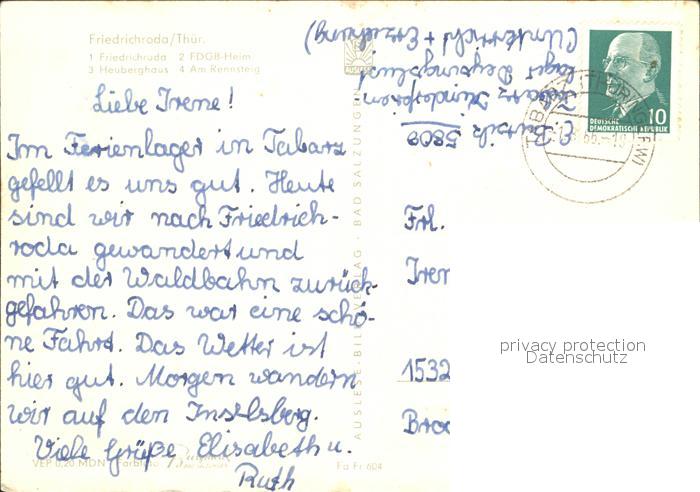 Friedrichroda/Thür.
1 Friedrichroda 2 FDGB-Heim
3 Heuberghaus 4 Am Rennsteig
Liebe Irene!
Im Ferienlager in Tabarz
gefällt es uns gut. Heute
sind wir nach Friedrich-
roda gewandert und
mit der Waldbahn zurück-
gefahren. Das war eine schö-
ne Fahrt. Das Wetter ist
hier gut. Morgen wandern
wir auf den Inselsberg.
Viele Grüße Elisabeth u.
Ruth
VEP 0,20 MDN
Fa Fr 604
AUSLESE-BILD-VERLAG · BAD SALZUNGEN
5808
Tabarz
(Unterricht + Erziehung)
DEUTSCHE
DEMOKRATISCHE REPUBLIK
10
Frl.
Iren
1532
privacy protection
Datenschutz